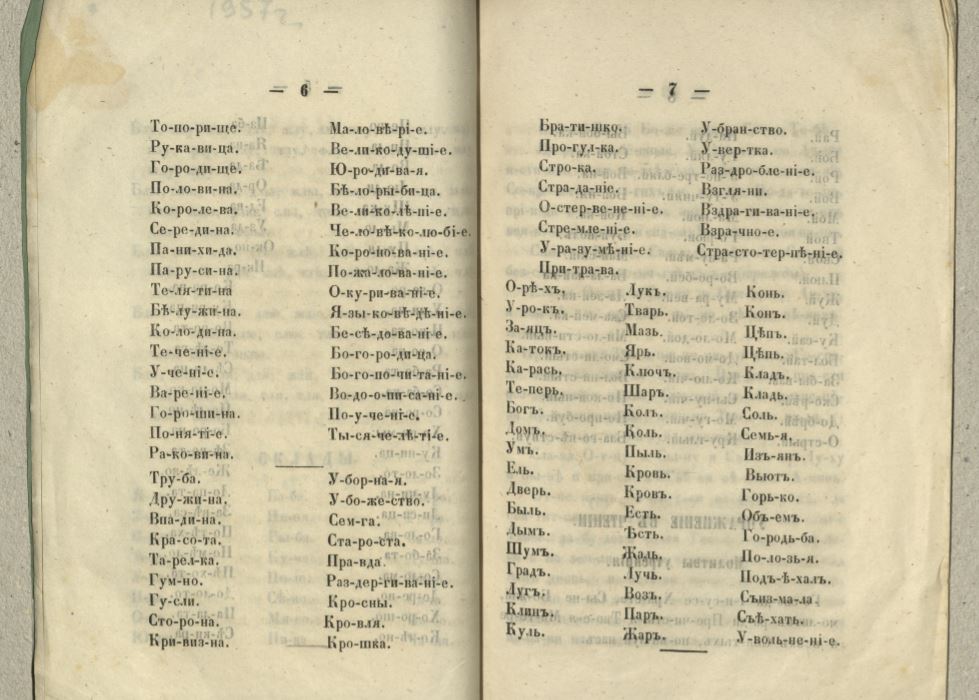 1957 г
— 6 —
То-по-ри-ще.
Ру-ка-ви-ца.
Го-ро-ди-ще.
По-ло-ви-на.
Ко-ро-ле-ва.
Се-ре-ди-на.
Па-ни-хи-да.
Па-ру-си-на.
Те-ля-ти-на
Бѣ-лу-жи-на.
Ко-ло-ди-на.
Те-че-ні-е.
У-че-ні-е.
Ва-ре-ні-е.
Го-ро-ши-на.
По-ня-ті-е.
Ра-ко-ви-на.
Ма-ло-вѣ-рі-е.
Ве-ли-ко-ду-ші-е.
Ю-ро-ди-ва-я.
Бѣ-ло-ры-би-ца.
Ве-ли-ко-лѣ-пі-е.
Че-ло-вѣ-ко-лю-бі-е.
Ко-ро-но-ва-ні-е.
По-жа-ло-ва-ні-е.
О-ку-ри-ва-ні-е.
Я-зы-ко-вѣ-дѣ-ні-е.
Бе-сѣ-до-ва-ні-е.
Бо-го-ро-ди-ца.
Бо-го-по-чи-та-ні-е.
Во-до-о-пи-са-ні-е.
По-у-че-ні-е.
Ты-ся-че-лѣ-ті-е.
Тру-ба.
Дру-жи-на.
Впа-ди-на.
Кра-со-та.
Та-рел-ка.
Гум-но.
Гу-сли.
Сто-ро-на.
Кри-виз-на.
У-бор-на-я.
У-бо-же-ство.
Сем-га.
Ста-ро-ста.
Пра-вда.
Раз-дер-ги-ва-ні-е.
Кро-сны.
Кро-вля.
Кро-шка.
— 7 —
Бра-ти-шко.
Про-гул-ка.
Стро-ка.
Стра-да-ніе.
О-стер-ве-не-ні-е.
Стре-мле-ні-е.
У-ра-зу-мѣ-ні-е.
При-тра-ва.
У-бран-ство.
У-вер-тка.
Раз-дро-бле-ні-е.
Взгля-ни.
Вздра-ги-ва-ні-е.
Взра-чно-е.
Стра-сто-тер-пѣ-ні-е.
О-рѣ-хъ.
У-ро-къ.
За-яцъ.
Ка-токъ.
Ка-рась.
Те-перь.
Богъ.
Домъ.
Умъ.
Ель.
Дверь.
Быль.
Дымъ.
Шумъ.
Градъ.
Лугъ.
Клинъ.
Куль.
Лукъ.
Тварь.
Мазь.
Ярь.
Ключъ.
Шаръ.
Колъ.
Коль.
Пыль.
Кровь.
Кровъ.
Есть.
Ѣсть.
Жаль.
Лучь.
Возъ.
Паръ.
Жаръ.
Конь.
Конъ.
Цѣпъ.
Цѣпь.
Кладъ.
Кладь.
Соль.
Семь-я.
Изъ-янъ.
Вьютъ.
Горь-ко.
Объ-емъ.
Го-родь-ба.
По-ло-зь-я.
Подъ-ѣ-халъ.
Съна-ма-ла.
Съѣ-хать.
У-воль-не-ні-е.